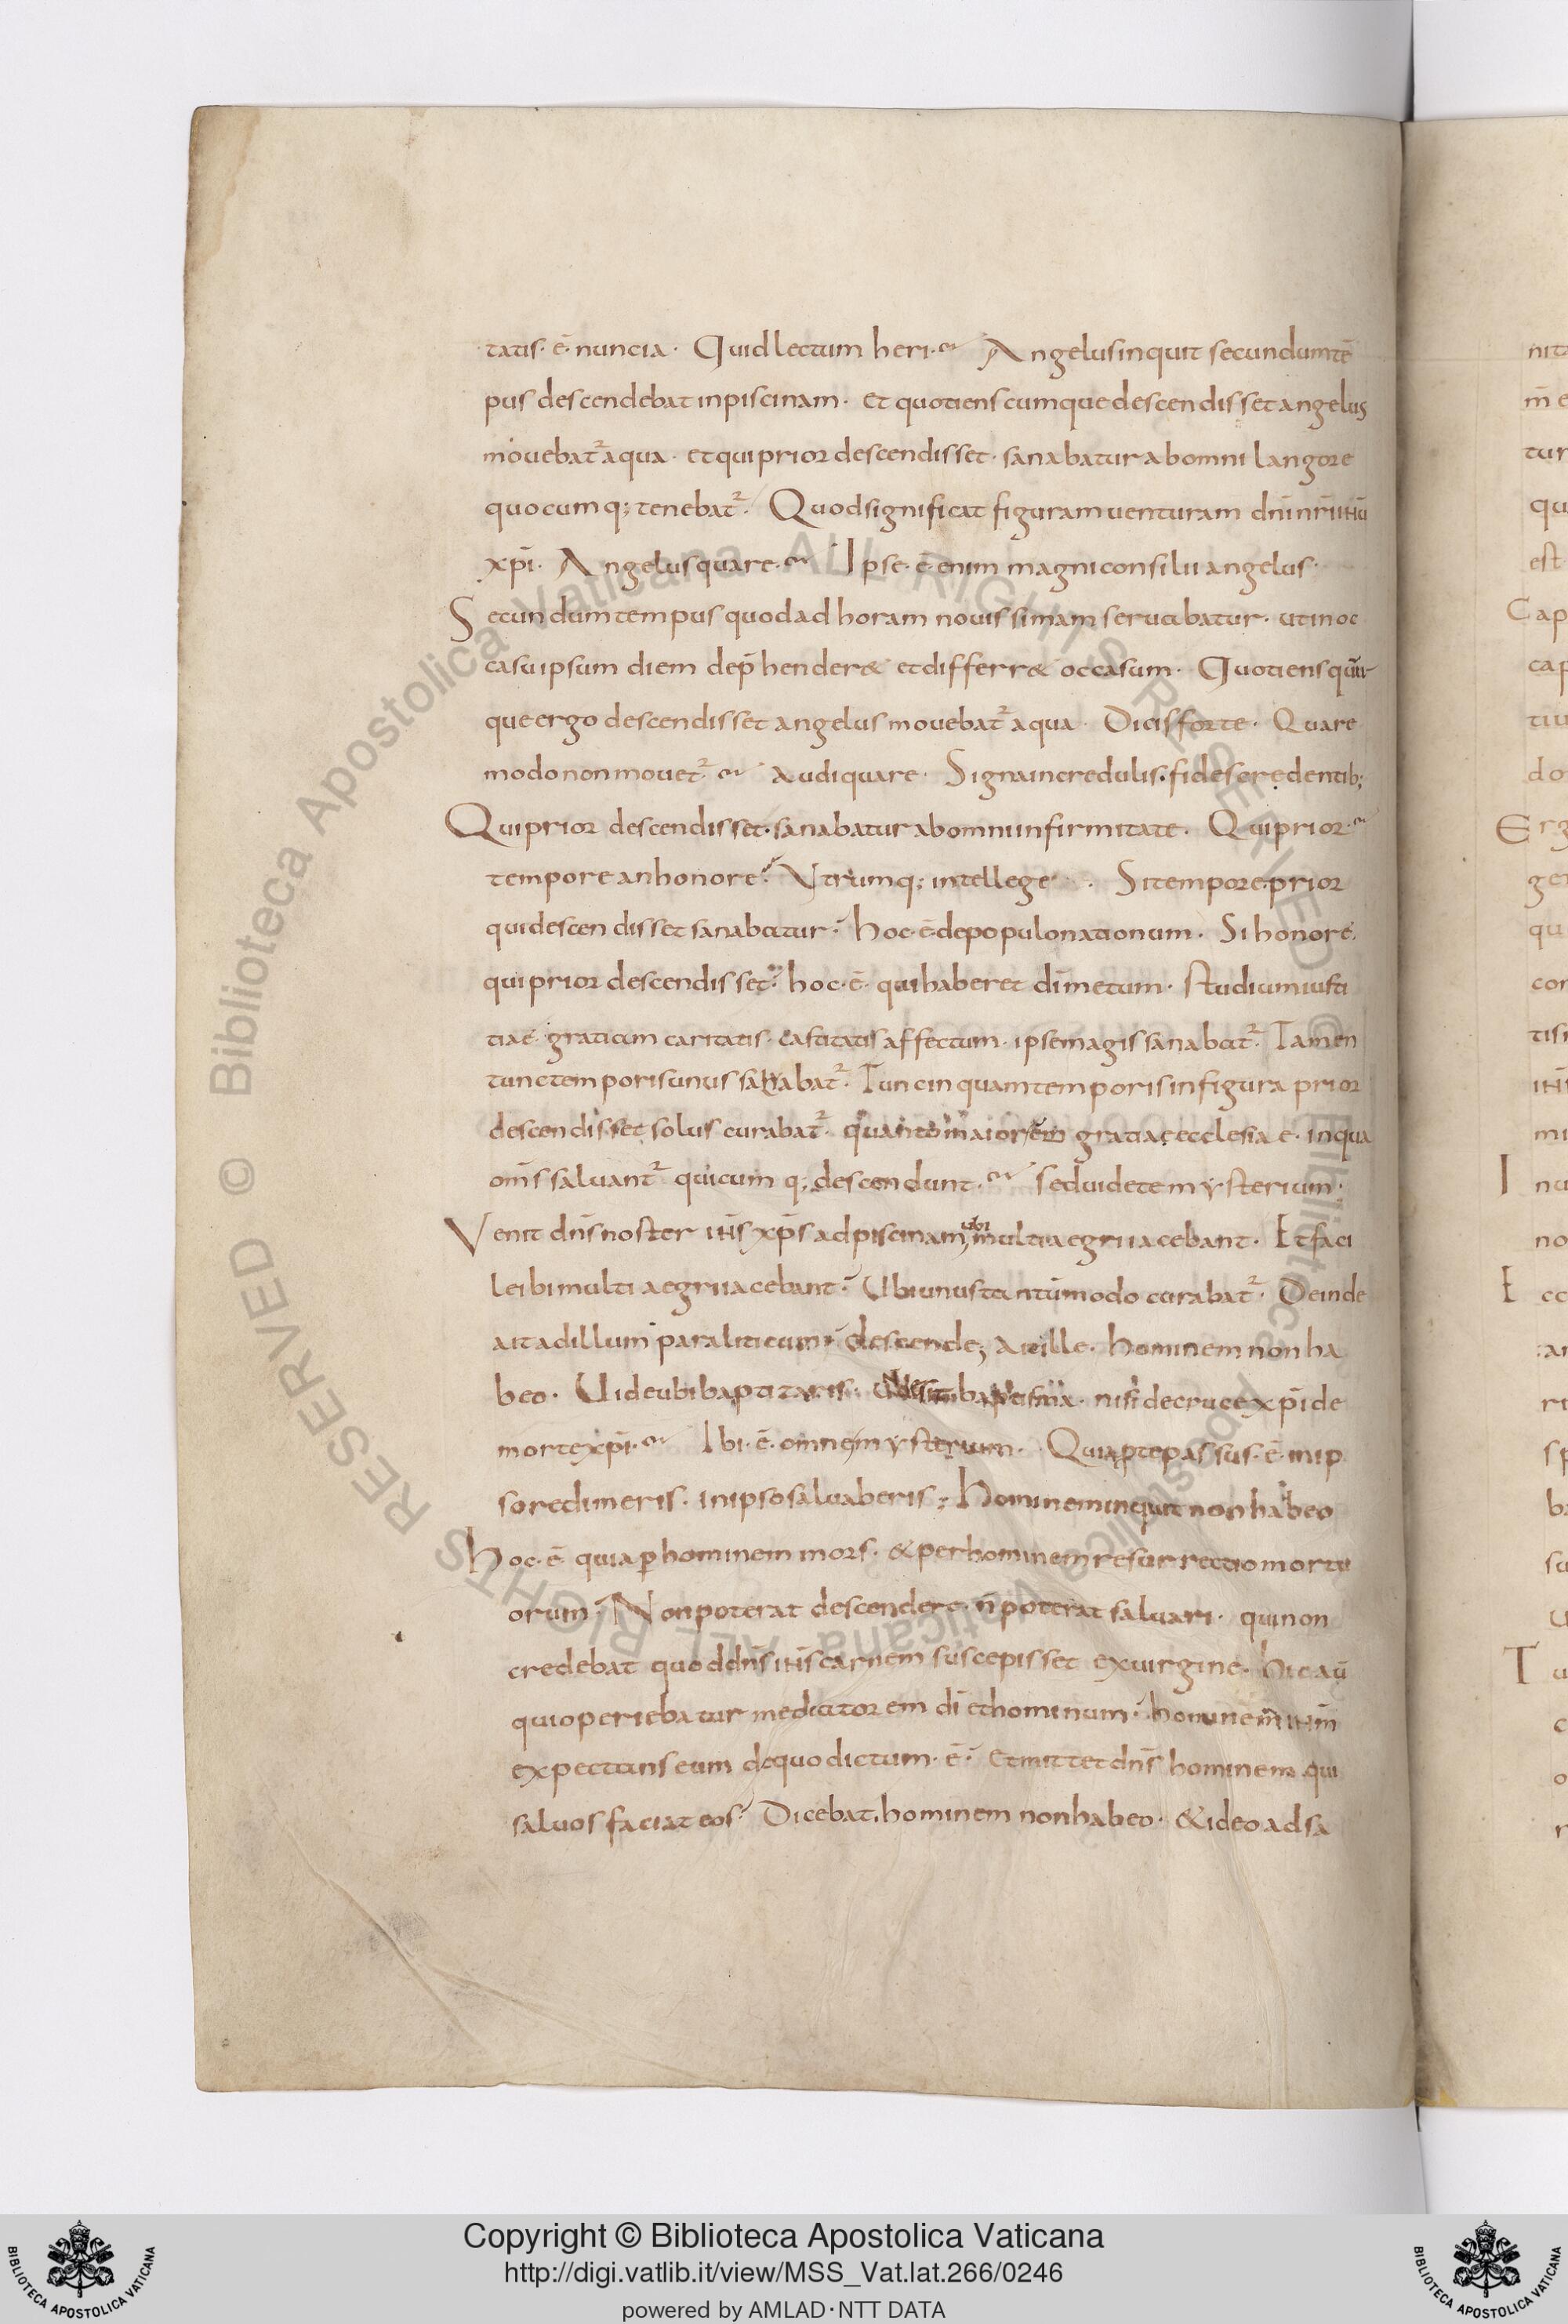 tatis· ē· nuncia· Quid lectum heri· Angelus inquit secundum tē
pus descendebat in piscinam· et quotienscumque descendisset angelus
mouebat᷑ aqua· et qui prior descendisset· sanabatur ab omni langore
quocumq; tenebat᷑· Quod significat figuram uenturam dn̄i nr̄i ihū
xpī· Angelus quare· Ipse· ē· enim magni consilii angelus·
Secundum tempus quod ad horam nouissimam seruabatur· ut in oc
casu ipsum diem dep̄henderet et differret occasum· Quotiens
que ergo descendisset angelus mouebat᷑ aqua· Dicis forte· Quare
modo non mouet᷑· audi quare· Signa incredulis· fides credentib;
Qui prior descendisset· sanabatur ab omni infirmitate· Qui prior·
tempore an honore? Vtrumq; intellege· Si tempore prior
qui descendisset sanabatur· hoc· ē· de populo nationum· Si honore·
qui prior descendisset· hoc· ē· qui haberet dī metum· studium iusti
tiae· gratiam caritatis· castitatis affectum· ipse magis sanabat᷑· Tamen
tunc temporis unus sanabat᷑· Tunc inquam temporis in figura prior
descendisset solus curabat᷑· quanto maior gratia ecclesiae· in qua
om̄s saluant᷑ quicumq; descendunt· sed uidete mysterium·
Venit dn̄s noster ihs̄ xp̄s ad piscinam, ubi multi aegri iacebant· Et faci
le ibi multi aegri iacebant· Ubi unus tantūmodo curabat᷑· Deinde
ait ad illum paraliticum· descende; Ait ille· hominem non ha
beo· Uide ubi baptizatis· unde sit baptisma· nisi de cruce xpī de
morte xpī· Ibi· ē· omne mysterium· Quia p̄ te passus· ē· in ip
so redimeris· in ipso saluaberis; Hominem inquit non habeo
Hoc· ē· quia ꝑ hominem mors· & per hominem resurrectio mortu
orum· Non poterat descendere· n̄ poterat saluari· qui non
credebat quod dn̄s ihs̄ carnem suscepisset ex uirgine· hic aū
qui operiebatur mediatorem dī et hominum· hominem ihm̄
expectans eum de quo dictum· ē· et mittet dn̄s hominem qui
saluos faciat eos· Dicebat· hominem non habeo· & ideo ad sa
nit
m̄ e
tur
qu
est
Cap
cap
tiu
do
Erg
ger
qu
con
tisr
ihs
mi
I nu
no
E cc
ar
ri
sp
ba
su
u
T u
c
o
r
© Biblioteca Apostolica Vaticana ALL RIGHTS RESERVED
Copyright © Biblioteca Apostolica Vaticana
http://digi.vatlib.it/view/MSS_Vat.lat.266/0246
powered by AMLAD·NTT DATA
BIBLIOTECA APOSTOLICA VATICANA
BIBLIOTECA APOSTOLICA VATICANA